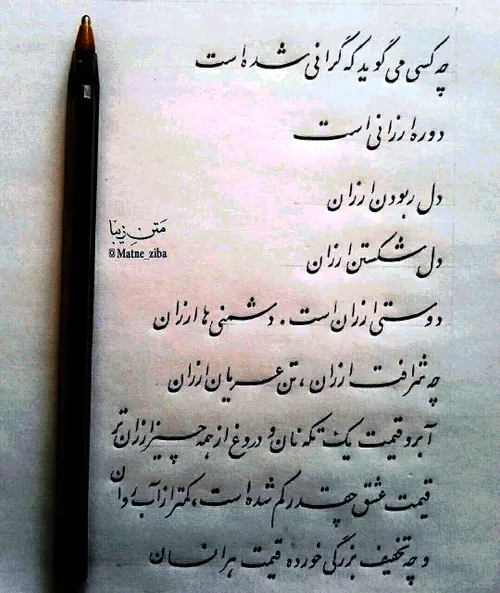 چه کسی می گوید که گرانی شده است
دوره ارزانی است
دل ربودن ارزان
دل شکستن ارزان
دوستی ارزان است. دشمنی ها ارزان
چه شرافت ارزان، تن عریان ارزان
آبرو قیمت یک تکه نان و دروغ از همه چیز ارزان تر
قیمت عشق چقدر کم شده است، کمتر از آب روان
و چه تخفیف بزرگی خورده قیمت هر انسان
متن زیبا
@Matne_ziba